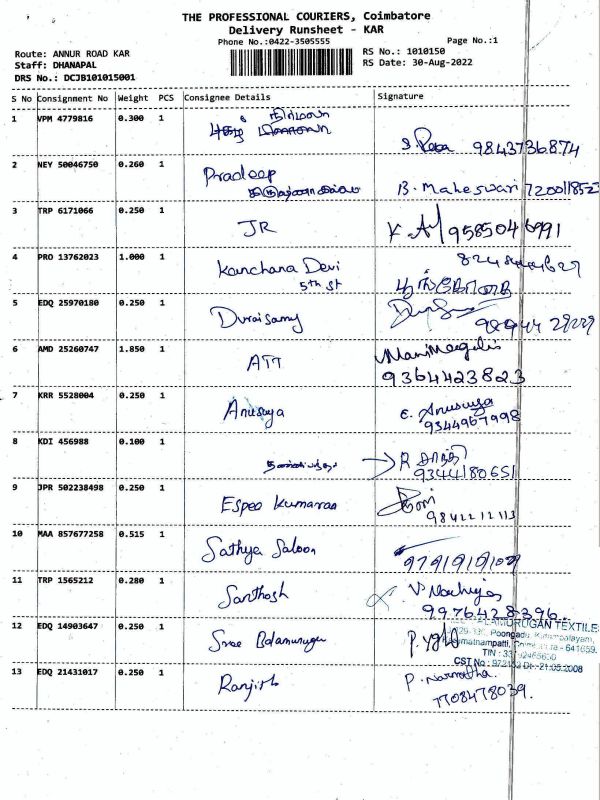 THE PROFESSIONAL COURIERS, Coimbatore
Delivery Runsheet - KAR
Phone No.:0422-3505555 Page No.:1
Route: ANNUR ROAD KAR RS No.: 1010150
Staff: DHANAPAL RS Date: 30-Aug-2022
DRS No.: DCJB101015001
S No Consignment No Weight PCS Consignee Details Signature
1 VPM 4779816 0.300 1
9843736874
2 NEY 50046750 0.260 1 Pradeep
B. Maheswari
3 TRP 6171066 0.250 1 JR 9585046991
4 PRO 13762023 1.000 1 Kanchana Devi
5th st
5 EDQ 25970180 0.250 1 Duraisamy
6 AMD 25260747 1.850 1 ATT
9364423823
7 KRR 5528004 0.250 1 Anusuya E. Anusuya
9344967998
8 KDI 456988 0.100 1 R சாந்தி
9344180651
9 JPR 502238498 0.250 1 Espeo Kumaran
9842212113
10 MAA 857677258 0.515 1 Sathya Saloon
11 TRP 1565212 0.280 1 Santhosh
9976428396
12 EDQ 14903647 0.250 1 Sree Balamurugan
TEXTILE
Poongadu
641659
TIN
CST No 21.05.2008
13 EDQ 21431017 0.250 1 Ranjith P. Narmatha
7708478039.